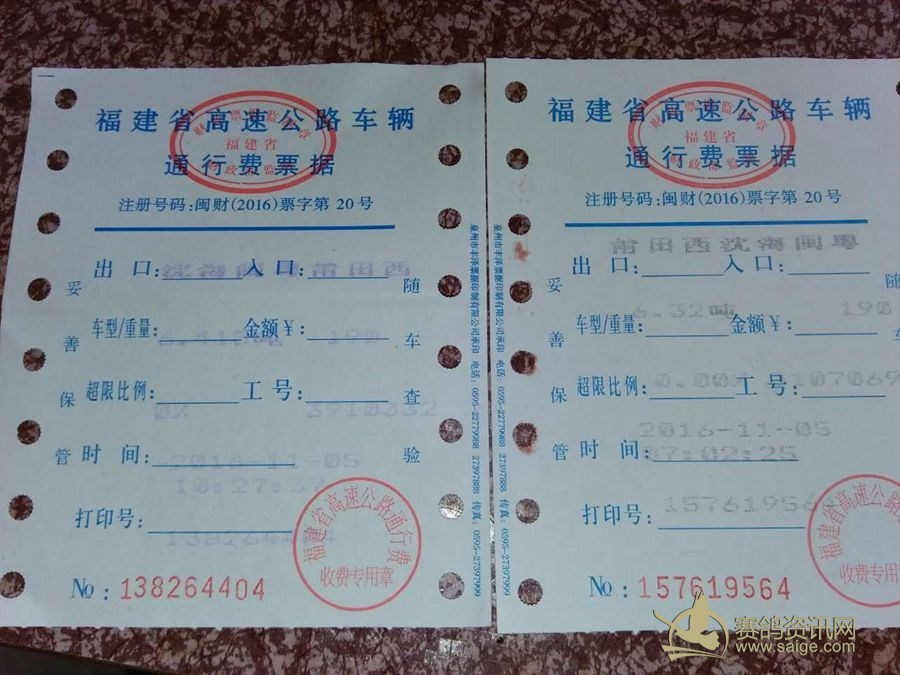 福建省高速公路车辆
通行费票据
福建省
注册号码:闽财(2016)票字第 20 号
出口: 沈海闽粤 入口: 莆田西
车型/重量: 吨 金额¥: 190
超限比例: 0% 工号: 3910332
时间: 2016-11-05
10:27:37
打印号: 138264404
№: 138264404
妥善保管
随车查验
福建省高速公路通行费
收费专用章
泉州市丰泽票据印制有限公司承印 电话: 0595-22779988 27397888 传真: 0595-27397999
福建省高速公路车辆
通行费票据
福建省
注册号码:闽财(2016)票字第 20 号
莆田西沈海闽粤
出口: 入口:
6.32吨 190
车型/重量: 金额¥:
超限比例: 0.00% 工号: 107069
时间: 2016-11-05
07:02:25
打印号: 157619564
№: 157619564
妥善保管
随车
福建省高速公路
收费专用章
泉州市丰泽票据印制有限公司承印 电话: 0595-22779988 27397888 传真: 0595-27397999
赛鸽资讯网
www.saige.com